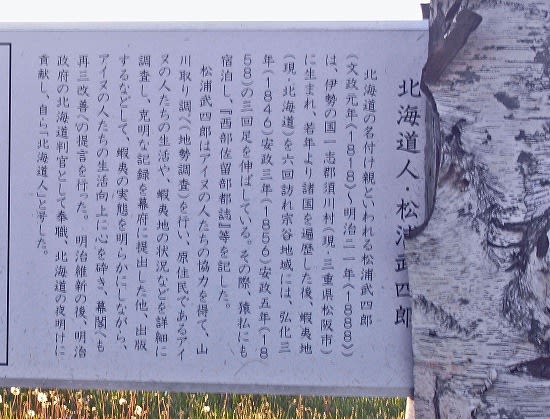 北海道人・松浦武四郎
北海道の名付け親といわれる松浦武四郎
(文政元年(1818)~明治二一年(1888))
は、伊勢の国一志郡須川村(現・三重県松阪市)
に生まれ、若年より諸国を遍歴した後、蝦夷地
(現・北海道)を六回訪れ宗谷地域には、弘化三
年(1846)安政三年(1856)安政五年(18
58)の三回足を伸ばしている。その際、猿払にも
宿泊し、『西部佐留部都誌』等を記した。
松浦武四郎はアイヌの人たちの協力を得て、山
川取り調べ(地勢調査)を行い、原住民であるアイ
ヌの人たちの生活や、蝦夷地の状況などを詳細に
調査し、克明な記録を幕府に提出した他、出版
するなどして、蝦夷の実態を明らかにしながら、
アイヌの人たちの生活向上に心を砕き、幕閣へも
再三改善への提言を行った。明治維新の後、明治
政府の北海道判官として奉職、北海道の夜明けに
貢献し、自ら「北海道人」と号した。